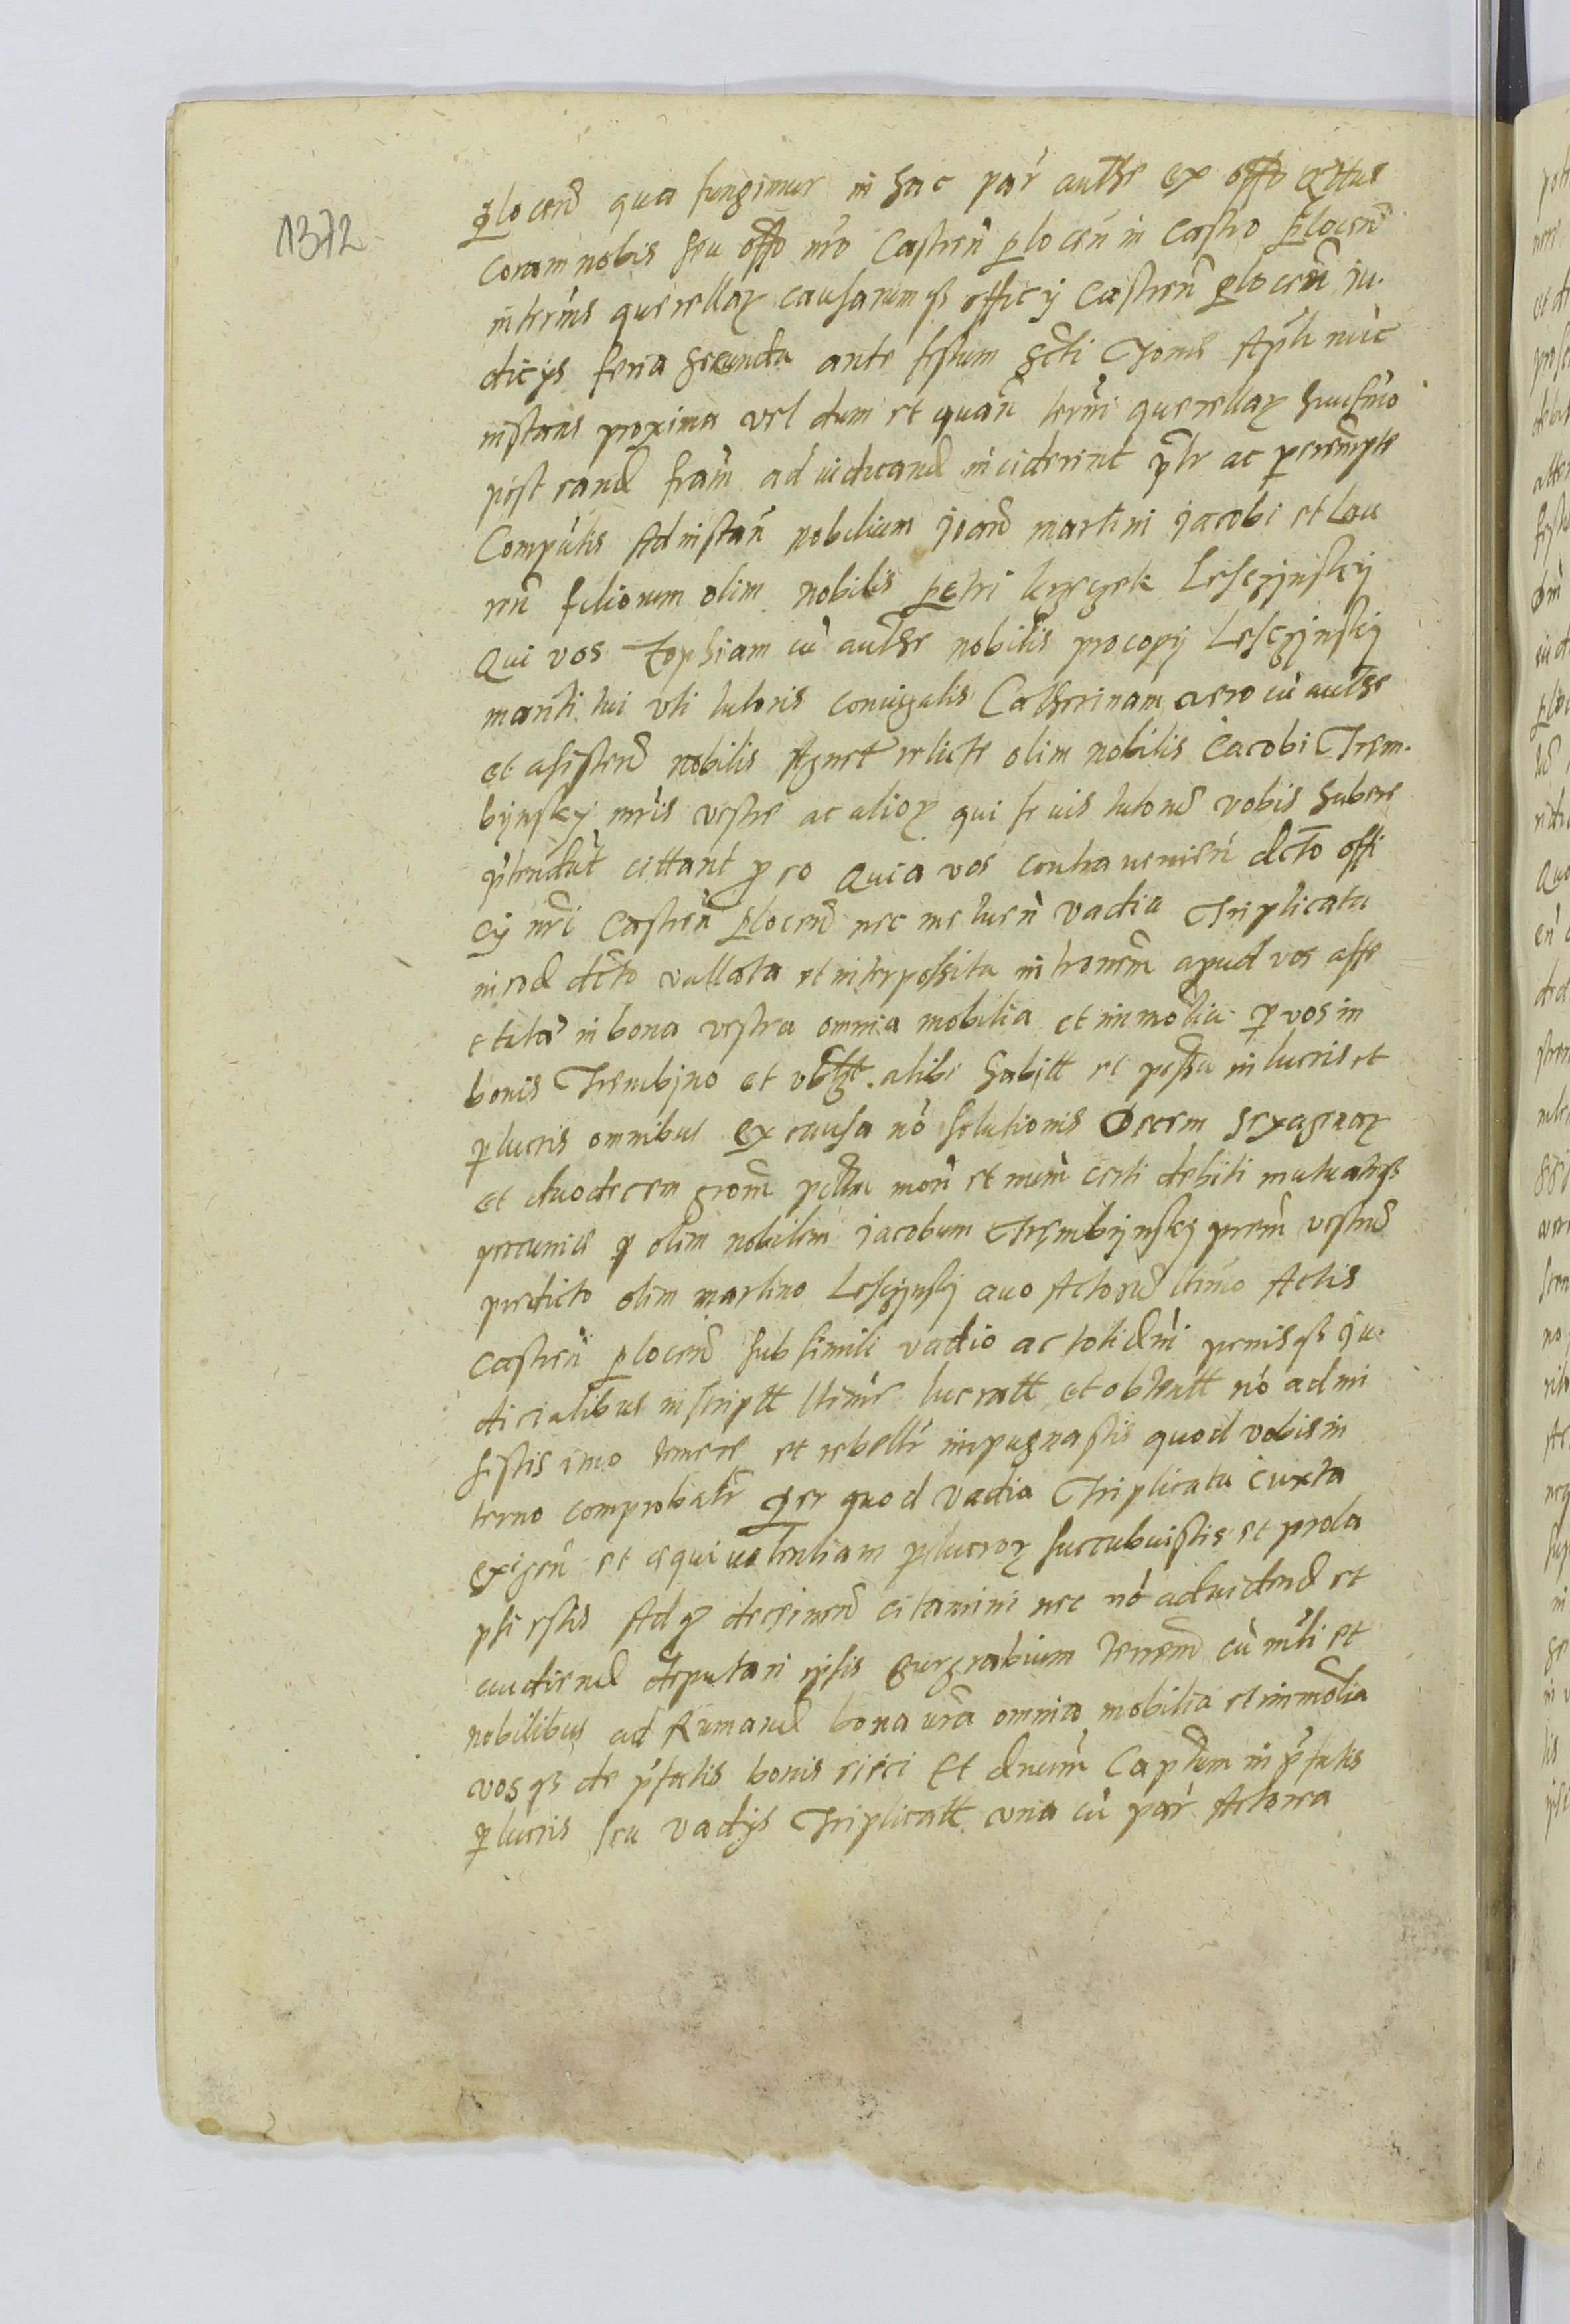 1372
plocen̄ qua fungimur in hac par̄ authe ex offo cittus
coram nobis seu offo nr̄o Castren̄ plocen̄ in castro plocen̄
in termīs querellaꝝ causarumqꝫ officÿ Castren̄ plocen̄ iu-
dicÿs feria secunda ante festum scti Thome Apłi nūc
instans proxima vel dum et quan̄ term̄i querellaꝝ huiusm̄o
post eand fram̄ ad iudicand inciderint p̄ntr ac peremp̄te
Compūtis Ad instan̄ nobilium joan̄ martini jacobi et Lau
ren̄ filiorum olim nobilis petri Lesczjnskij
Qui vos Zophiam cū authe nobilis procopÿ Lesczjnskj
mariti tui vti tutoris coniugalis Catherinam vero cū authe
et assisten̄ nobilis Agnet relicte olim nobilis iacobi Trem-
bÿnskj mr̄is vestre ac alioꝝ qui se vis tutores vobis habere
p̄tendūt cittant ꝓ eo Quia vos contrauenien̄ dcto offi
cÿ nr̄i Castren̄ plocen̄ nec metuen̄ vadia Triplicata
in eod dcto vallata et interpossita intromm̄ apud vos affe
ctatā in bona vestra omnia mobilia et immobilia ꝑ vos in
bonis Trembjno et vblꝫt. alibi habitt et possa in lucris et
ꝑlucris omnibus ex causa nō solutionis Decem sexagenaꝝ
et duodecem grom̄ pecūn mon̄ et num̄ certi debiti mutuatqꝫ
pecunie ꝑ olim nobilem jacobum Trembÿnskj prem̄ vestrū
predicto olim martino Lesczjnskj auo Actorū Itimo Actis
castren̄ plocen̄ sub simili vadio ac totidm̄ penisqꝫ ju-
dicialibus inscriptt Itime lucratt et obtentt nō admi
sistis imo temere et rebellr̄ impugnastis quod vobis in
termo comprobatr̄ Per quod vadia Triplicata iuxta
exigen̄ et equiualentiam ꝑlucroꝝ succubuistis et prola
psi estis Ad ꝙ decernen̄ citamini nec nō ad videnđ et
audiend deputari ipsis burgrabium terren̄ cū mlti et
nobilibus ad Rumand bona vrā omnia mobilia et immobilia
vosqꝫ de p̄fatis bonis eiici Et dnum̄ Captum in p̄fatis
ꝑlucris seu vadÿs Triplicatt vna cū par̄ Actorea